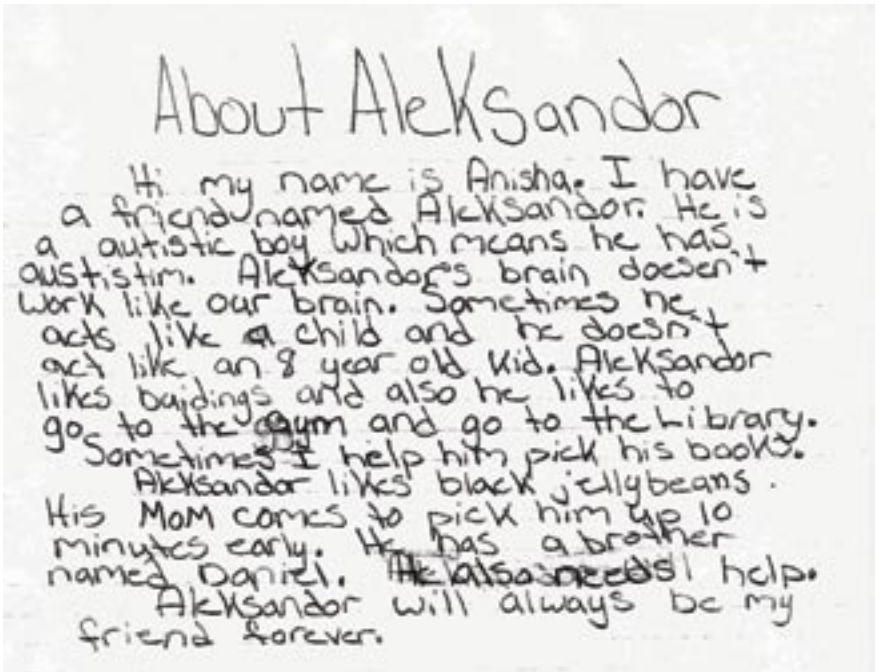 About Aleksandor
Hi my name is Anisha. I have
a friend named Aleksandor. He is
a autistic boy which means he has
austistim. Aleksandor's brain doesen't
work like our brain. Sometimes he
acts like a child and he doesn't
act like an 8 year old kid. Aleksandor
likes buidings and also he likes to
go to the gym and go to the Library.
Sometimes I help him pick his books.
Aleksandor likes black jellybeans.
His Mom comes to pick him up 10
minutes early. He has a brother
named Daniel. He also needs help.
Aleksandor will always be my
friend forever.